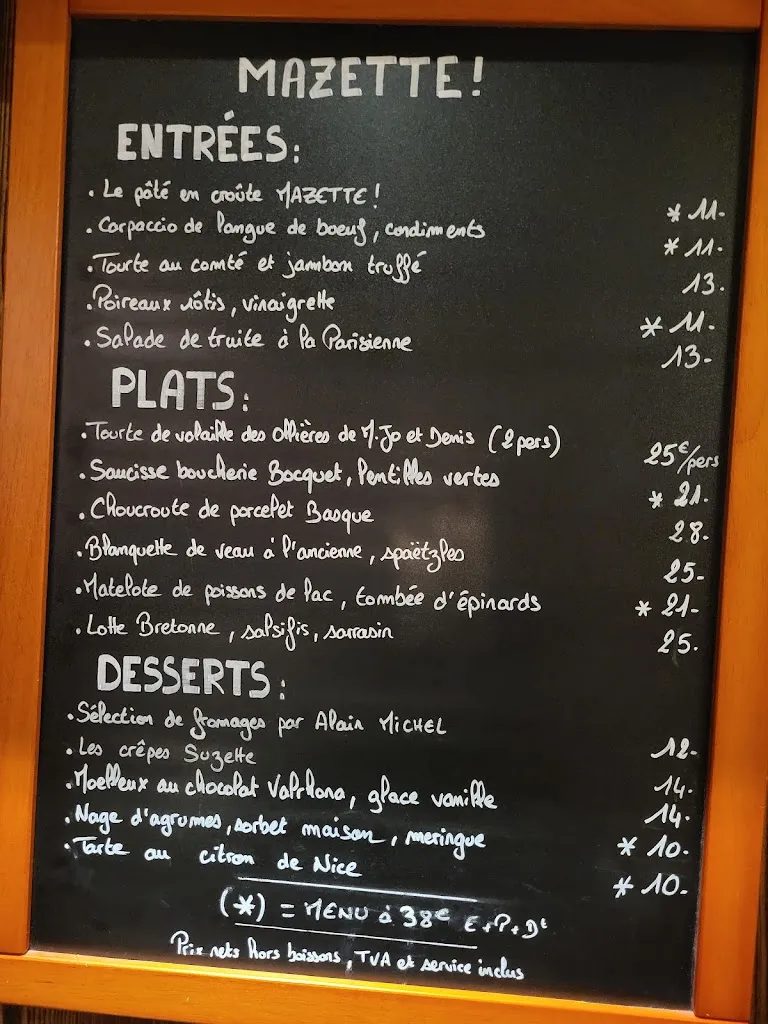 MAZETTE!
ENTRÉES:
. Le pâté en croûte MAZETTE! * 11-
. Carpaccio de langue de boeuf, condiments * 11-
. Tourte au comté et jambon truffé 13.
. Poireaux rôtis, vinaigrette * 11-
. Salade de truite à la Parisienne 13-
PLATS:
. Tourte de volaille des Ollières de M.Jo et Denis (2pers) 25€/pers
. Saucisse boucherie Bocquet, lentilles vertes * 21.
. Choucroute de porcelet Basque 28-
. Blanquette de veau à l'ancienne, spaëtzles 25-
. Matelote de poissons de lac, tombée d'épinards * 21-
. Lotte Bretonne, salsifis, sarrasin 25.
DESSERTS:
. Sélection de fromages par Alain MICHEL 12-
. Les crêpes Suzette 14-
. Moelleux au chocolat Valrhona, glace vanille 14-
. Nage d'agrumes, sorbet maison, meringue * 10-
. Tarte au citron de Nice * 10-
(*) = MENU à 38€ E+P+Dt
Prix nets hors boissons, TVA et service inclus